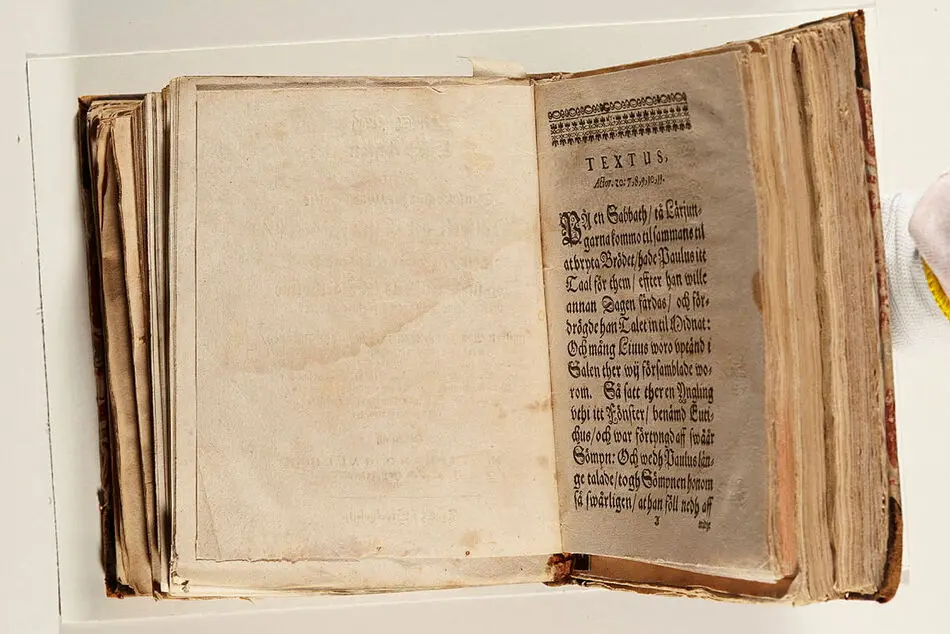 TEXTUS,
Actor. 20: 7, 8, 9, 10, 11.
PÅ en Sabbath / tå Lärjun-
garna kommo til sammans til
at bryta Brödet / hade Paulus itt
Taal för them / effter han wille
annan Dagen färdas / och för-
drögde han Talet in til Midnat:
Och mång Liuus woro vptänd i
Salen ther wij församblade wo-
rom. Så satt ther en Yngling
vthi itt Fönster / benämd Euti-
chus / och war förtyngd aff swåår
Sömpn: Och wedh Paulus län-
ge talade / togh Sömpnen honom
så swårligen / at han föll nedh aff